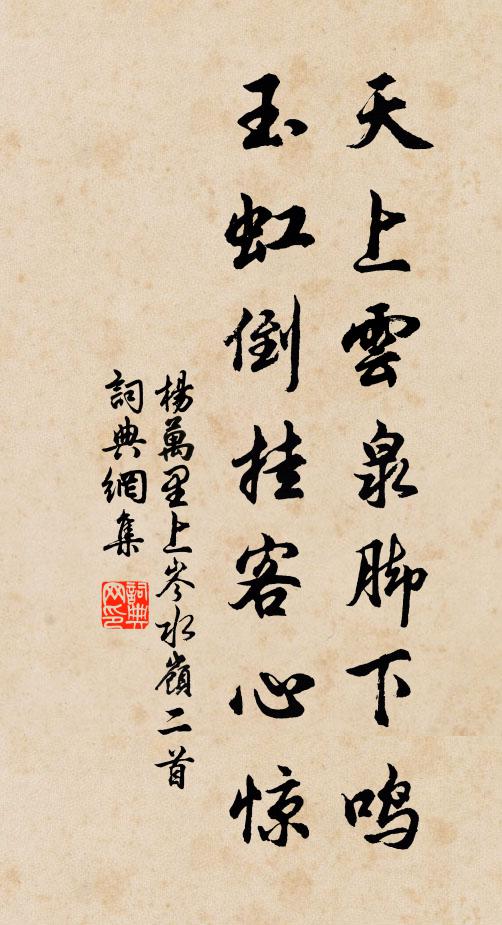 天上雲泉脚下鸣
玉虹倒挂客心惊
楊萬里上岑水嶺二首
詞典網集
詞典
网印